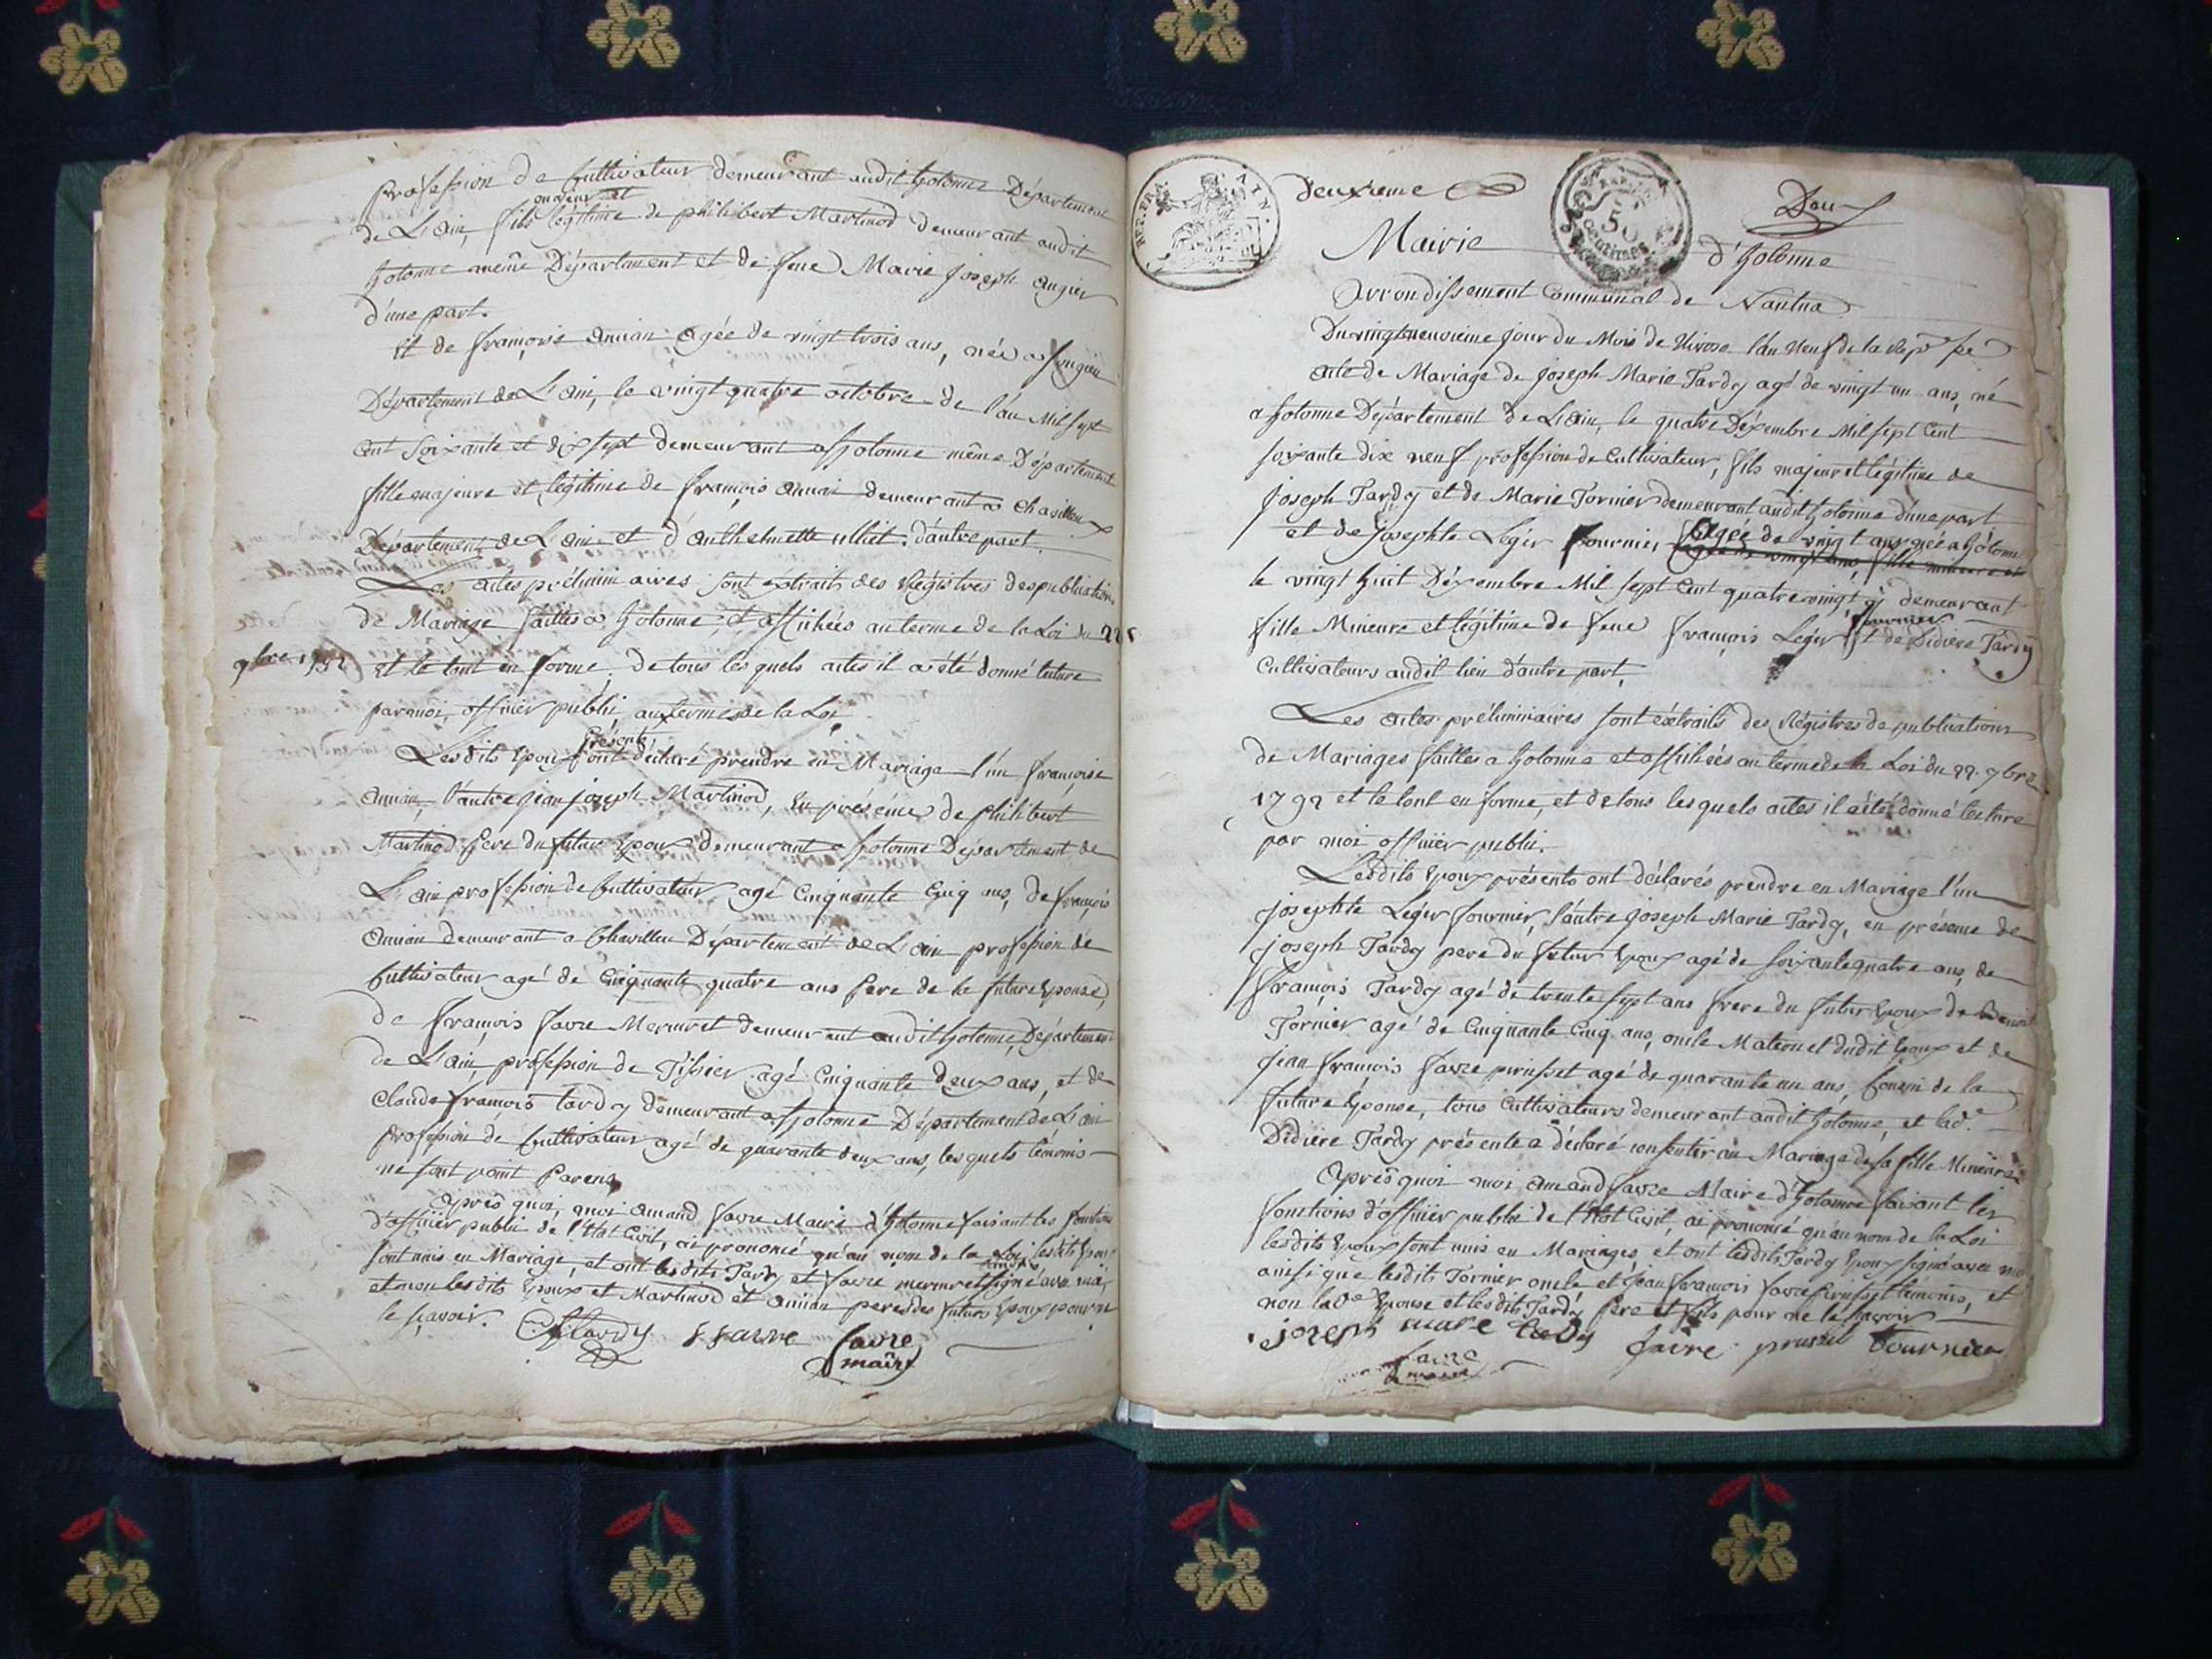 Profession de Cultivateur demeurant audit hotonne Département
majeur et
de L'ain, fils légitime de philibert Martinod demeurant audit
hotonne même Département et de feue Marie joseph
d'une part.
Et de françoise agée de vingt trois ans, née a songieu
Département de L'ain, le vingt quatre octobre de l'an Mil sept
Cent soixante et dix sept demeurant a hotonne même Département
fille majeure et légitime de françois demeurant a
Département de L'ain et d'Anthelmette d'autre part.
Les actes préliminaires sont extraits des Régistres des publications
de Mariage faittes a hotonne, et affichées au terme de la Loi du 22
9bre 1792 Et le tout en forme, de tous lesquels actes il a été donné lecture
par moi, officier public, aux termes de la Loi
présents
Lesdits Epoux ont déclaré prendre en Mariage l'un françoise
l'autre jean joseph Martinod, En présence de philibert
Martinod Pere du futur Epoux demeurant a hotonne Département de
L'ain profession de Cultivateur agé Cinquante Cinq ans, de françois
demeurant a Chavillieu Département de L'ain profession de
Cultivateur agé de Cinquante quatre ans Pere de la future Epouse,
de françois favre Mermet demeurant audit hotonne, Département
de L'ain, profession de Tissier agé Cinquante deux ans, et de
Claude françois tardy demeurant a hotonne Département de L'ain
profession de Cultivateur agé de quarante deux ans, lesquels témoins
ne sont point Parens
Après quoi, moi Amand favre Maire d'hotonne faisant les fonctions
d'officier public de l'Etat Civil, ai prononcé qu'au nom de la Loi, lesdits Epoux
sont unis en Mariage, et ont lesdits Tardy et favre mermet signé avec moi,
et non lesdits Epoux et Martinod et peres des futurs Epoux pour ne
le sçavoir.
Cftardy ffavre favre
maire
deuxieme Deux
REP. FRA. AIN.
50
Centimes
Mairie d'hotonne
Arrondissement Communal de Nantua
Du vingtneuvieme jour du Mois de Nivose l'an Neuf de la Rep.
acte de Mariage de joseph Marie Tardy agé de vingt un ans, né
a hotonne Département de L'ain, le quatre Déxembre Mil sept Cent
soixante dix neuf profession de Cultivateur, fils majeur et légitime de
joseph Tardy et de Marie Tornier demeurant audit hotonne d'une part
et de josephte Leger fournier agée de vingt ans née a hotonne
le vingt huit Déxembre Mil sept Cent quatre vingt y demeurant
fournier
fille Mineure et légitime de feue françois Leger et de Didiere Tardy
Cultivateurs audit lieu d'autre part.
Les actes préliminaires sont extraits des Régistres de publications
de Mariages faittes a hotonne et affichées au terme de la Loi du 22. 9bre
1792 et le tout en forme, et de tous lesquels actes il a été donné lecture
par moi officier public.
Lesdits Epoux présents ont déclarés prendre en Mariage l'un
josephte Leger fournier, l'autre joseph Marie Tardy, en présence de
joseph Tardy pere du futur Epoux agé de soixante quatre ans, de
françois Tardy agé de trente sept ans frere du futur Epoux de Benoit
Tornier agé de Cinquante Cinq ans, oncle Maternel dudit Epoux et de
jean françois favre prusset agé de quarante un ans, Cousin de la
future Epouse, tous Cultivateurs demeurant audit hotonne, et lad.e
Didiere Tardy présente a déclaré consentir au Mariage de sa fille Mineure
Après quoi moi Amand favre Maire d'hotonne faisant les
fonctions d'officier public de l'Etat Civil, ai prononcé qu'au nom de la Loi
lesdits Epoux sont unis en Mariages, et ont lesdits Tardy Epoux signé avec moi
ainsi que lesdits Tornier oncle et jean françois favre prusset témoins, et
non lade Epouse et lesdits Tardy Pere et fils pour ne le sçavoir
joseph marie tardy favre prusset tournier
favre
maire